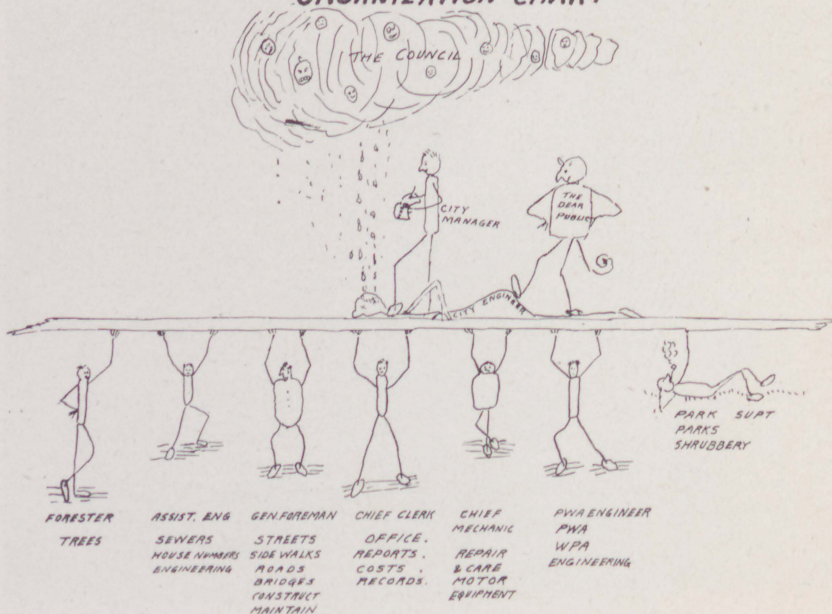 ORGANIZATION CHART
THE COUNCIL
CITY
MANAGER
THE
DEAR
PUBLIC
CITY ENGINEER
PARK SUPT
PARKS
SHRUBBERY
FORESTER
TREES
ASSIST. ENG
SEWERS
HOUSE NUMBERS
ENGINEERING
GEN. FOREMAN
STREETS
SIDE WALKS
ROADS
BRIDGES
CONSTRUCT
MAINTAIN
CHIEF CLERK
OFFICE.
REPORTS.
COSTS.
RECORDS.
CHIEF
MECHANIC
REPAIR
& CARE
MOTOR
EQUIPMENT
PWA ENGINEER
PWA
WPA
ENGINEERING